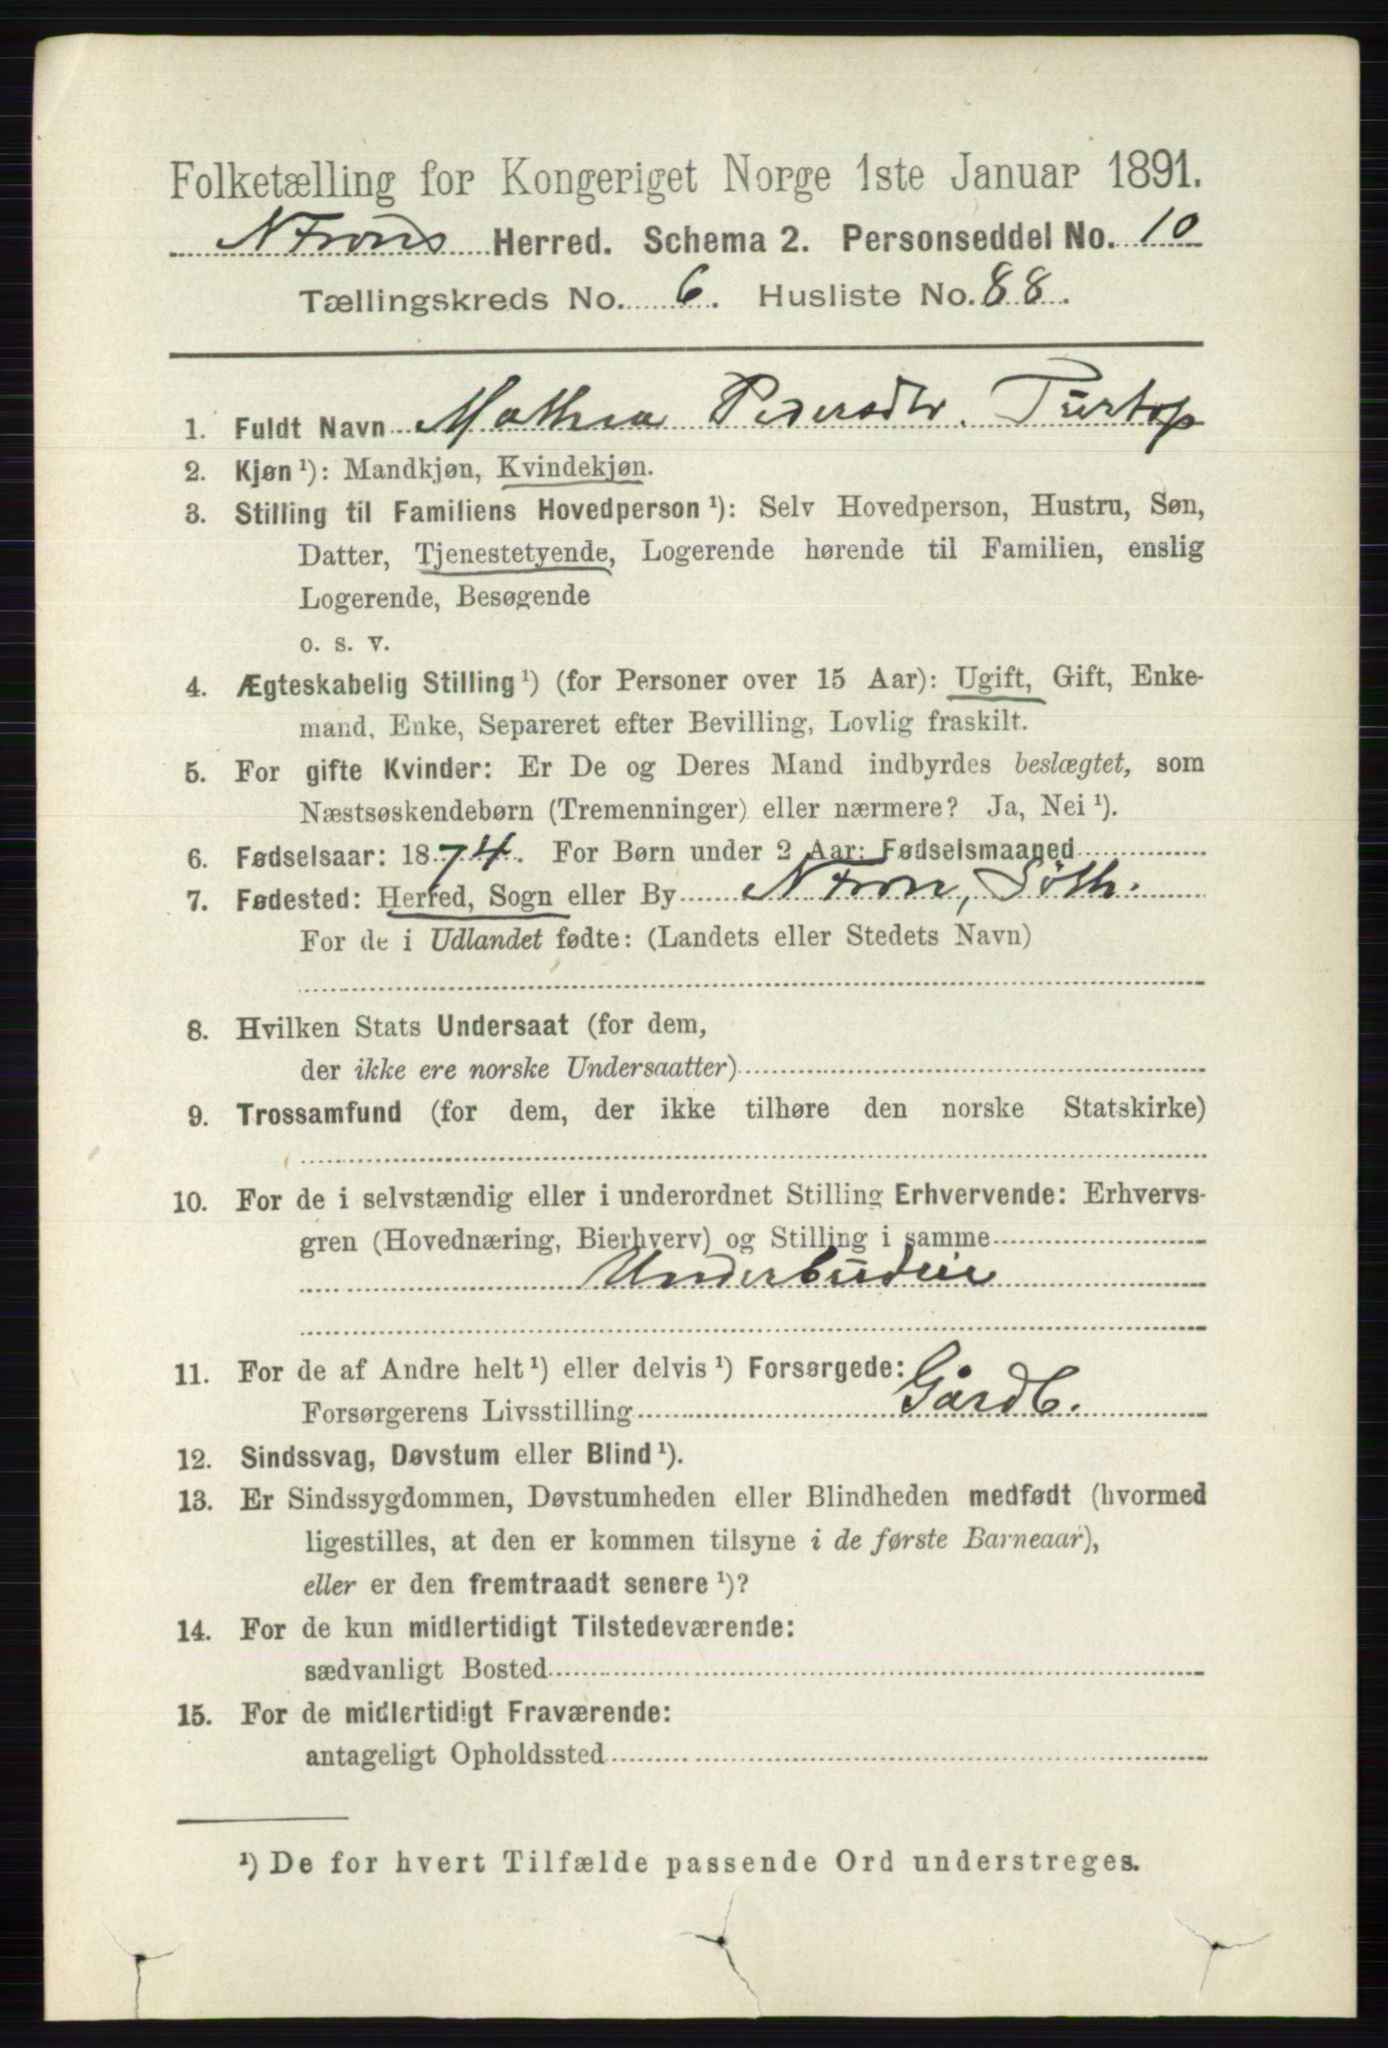 Folketælling for Kongeriget Norge 1ste Januar 1891.
N Frons Herred. Schema 2. Personseddel No. 10
Tællingskreds No. 6. Husliste No. 88.
1. Fuldt Navn Mathea Pedersdtr. Turtop
2. Kjøn ¹): Mandkjøn, Kvindekjøn.
3. Stilling til Familiens Hovedperson ¹): Selv Hovedperson, Hustru, Søn,
Datter, Tjenestetyende, Logerende hørende til Familien, enslig
Logerende, Besøgende
o. s. v.
4. Ægteskabelig Stilling ¹) (for Personer over 15 Aar): Ugift, Gift, Enke-
mand, Enke, Separeret efter Bevilling, Lovlig fraskilt.
5. For gifte Kvinder: Er De og Deres Mand indbyrdes beslægtet, som
Næstsøskendebørn (Tremenninger) eller nærmere? Ja, Nei ¹).
6. Fødselsaar: 1874. For Børn under 2 Aar: Fødselsmaaned
7. Fødested: Herred, Sogn eller By N Fron, Søth.
For de i Udlandet fødte: (Landets eller Stedets Navn)
8. Hvilken Stats Undersaat (for dem,
der ikke ere norske Undersaatter)
9. Trossamfund (for dem, der ikke tilhøre den norske Statskirke)
10. For de i selvstændig eller i underordnet Stilling Erhvervende: Erhvervs-
gren (Hovednæring, Bierhverv) og Stilling i samme
Underbudeie
11. For de af Andre helt ¹) eller delvis ¹) Forsørgede:
Forsørgerens Livsstilling Gårdb.
12. Sindssvag, Døvstum eller Blind ¹).
13. Er Sindssygdommen, Døvstumheden eller Blindheden medfødt (hvormed
ligestilles, at den er kommen tilsyne i de første Barneaar),
eller er den fremtraadt senere ¹)?
14. For de kun midlertidigt Tilstedeværende:
sædvanligt Bosted
15. For de midlertidigt Fraværende:
antageligt Opholdssted
¹) De for hvert Tilfælde passende Ord understreges.